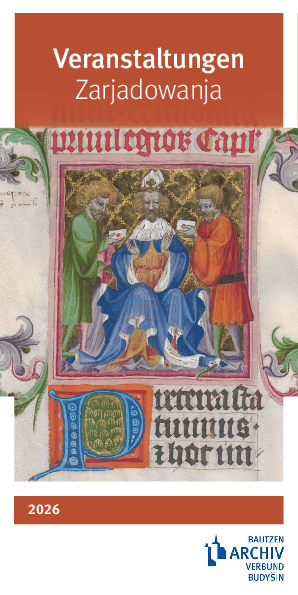 Veranstaltungen
Zarjadowanja
priuilegior Capl
Preterea sta
tuimus
2026
BAUTZEN
ARCHIV
VERBUND
BUDYŠIN